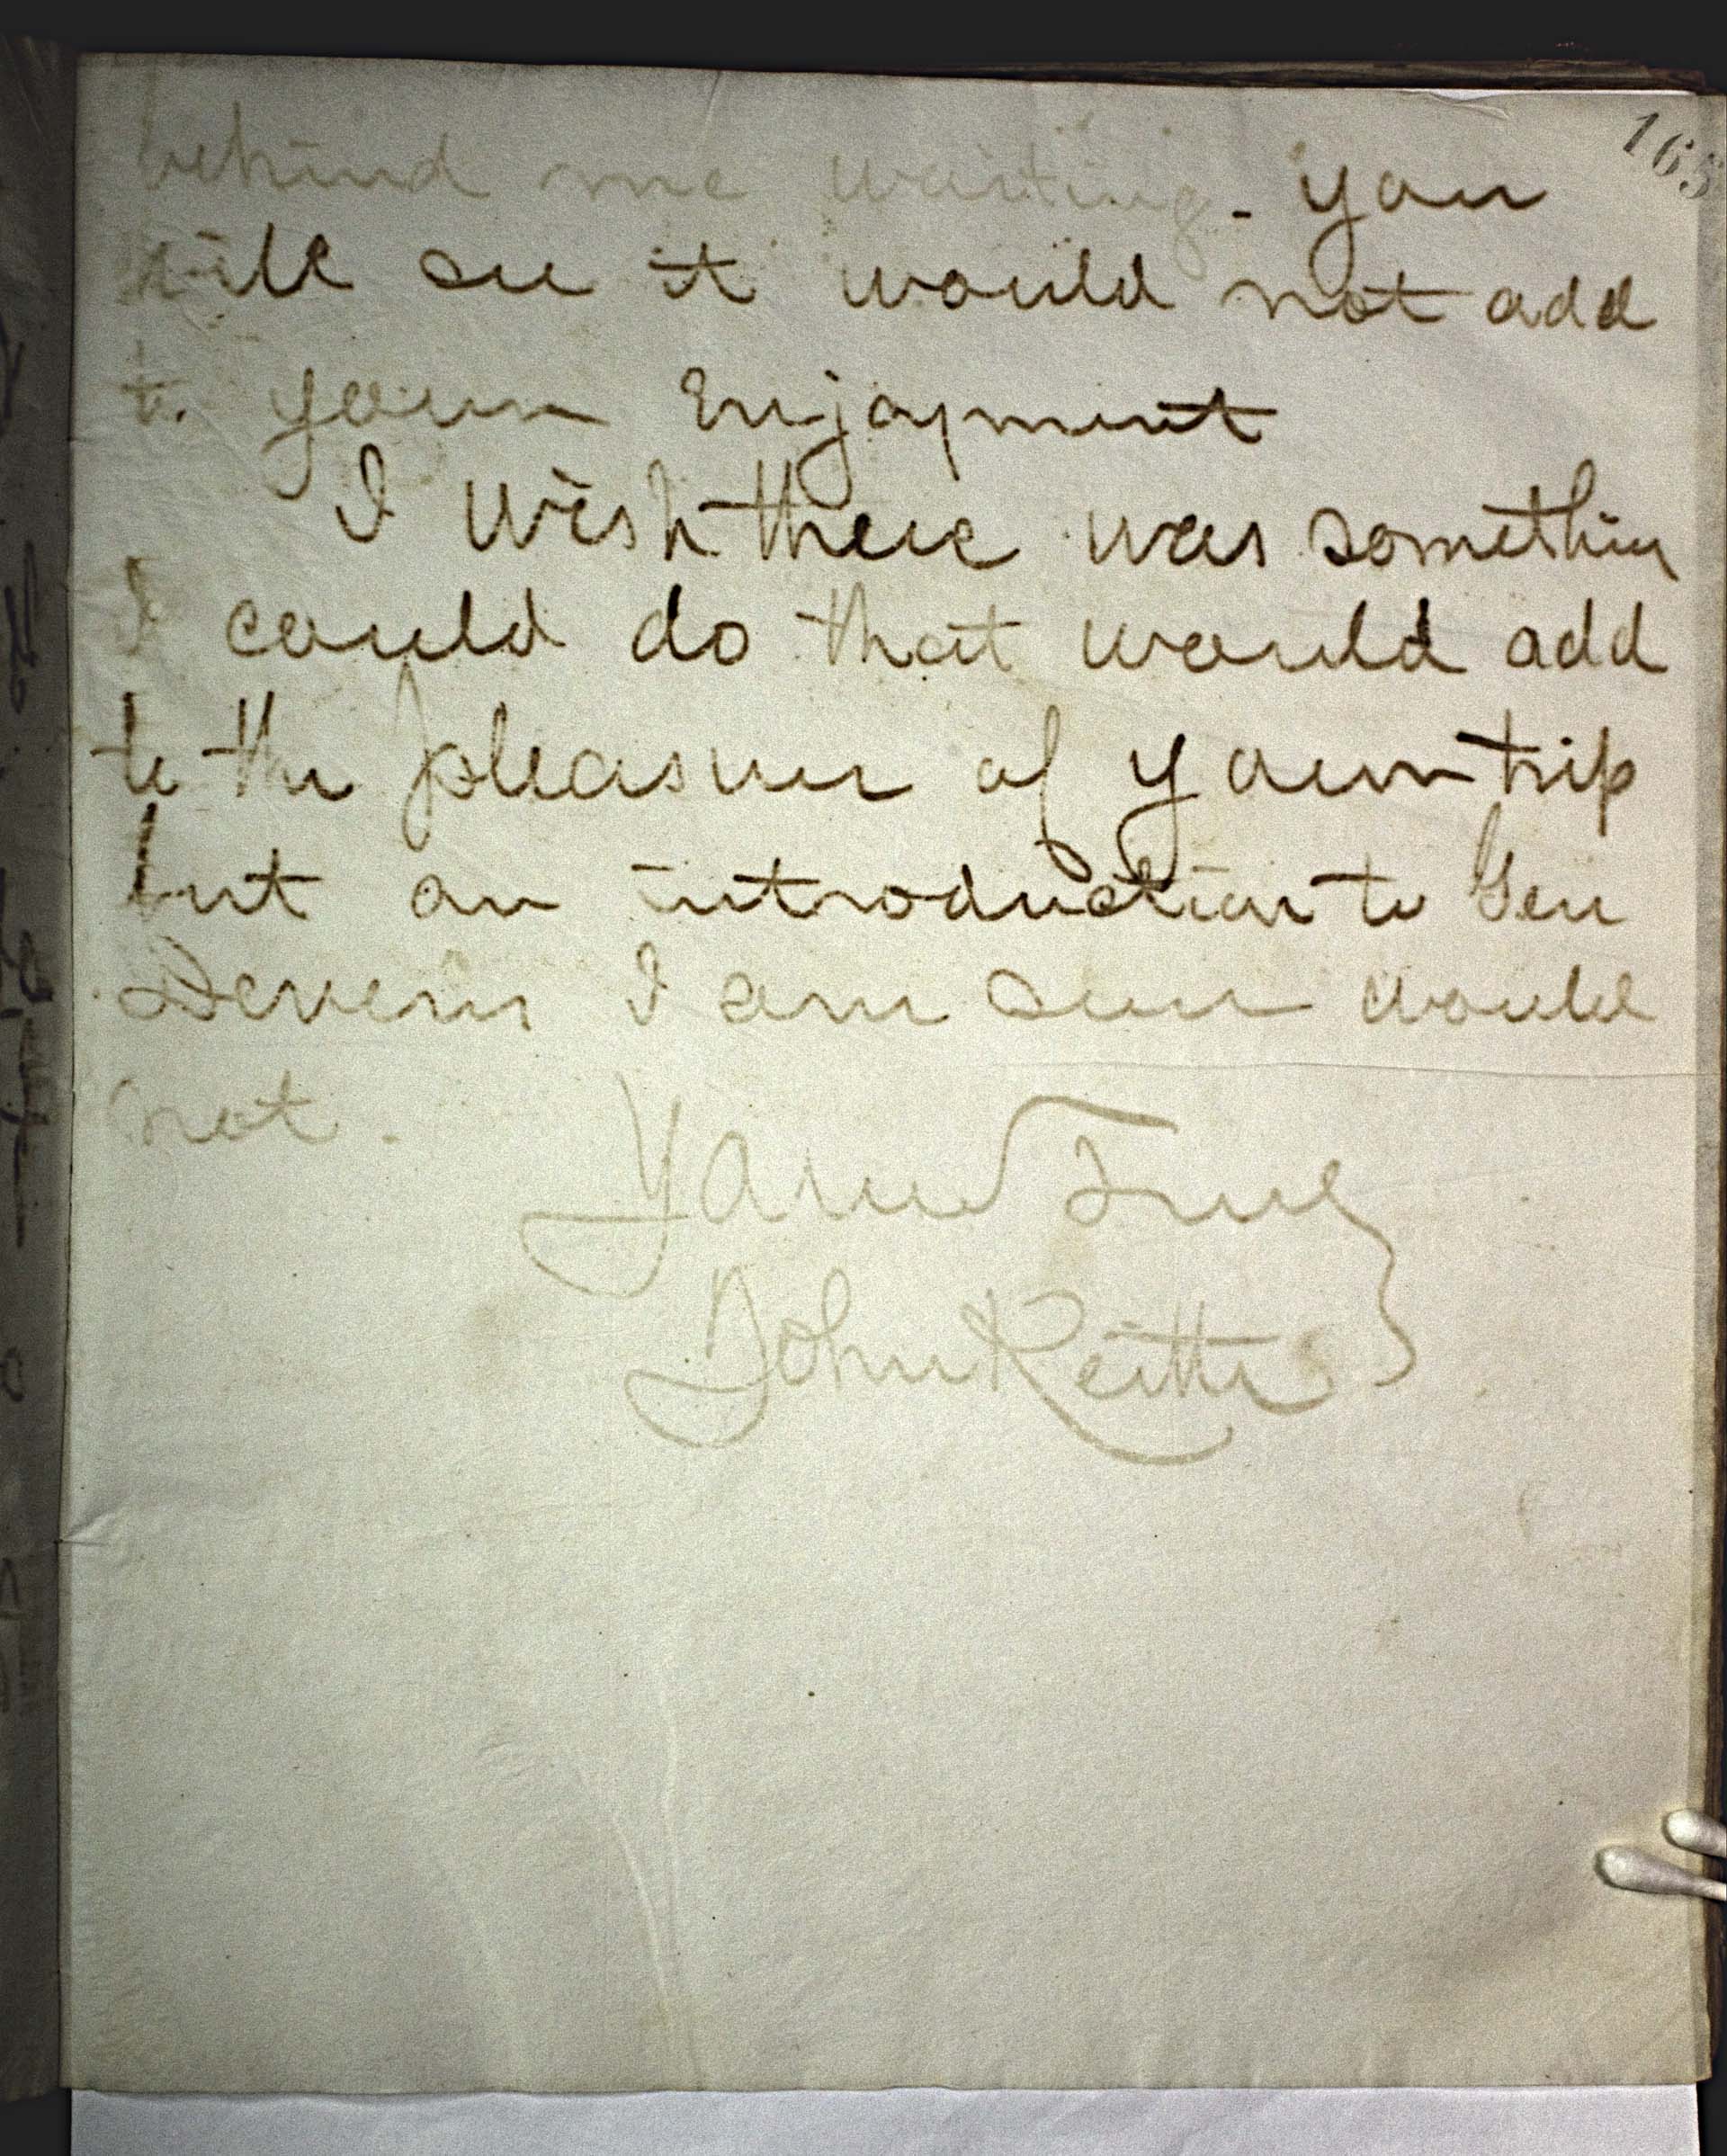 165
behind me waiting - you
will see it would not add
to your Enjoyment
I wish there was somethin
I could do that would add
to the pleasure of your trip
but an introduction to Gen
Devens I am sure would
not.
Yours Truly
John Keith